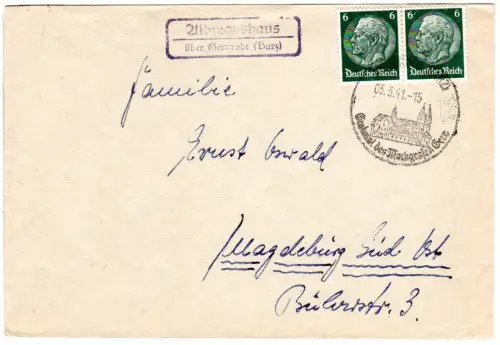 Albrechtshaus
über Gernrode (Harz)
6 6
Deutsches Reich Deutsches Reich
03.3.41.-15
Grabmal des Markgrafen Gero
Familie
Ernst Oswald
Magdeburg Süd Ost
Bülowstr. 3.